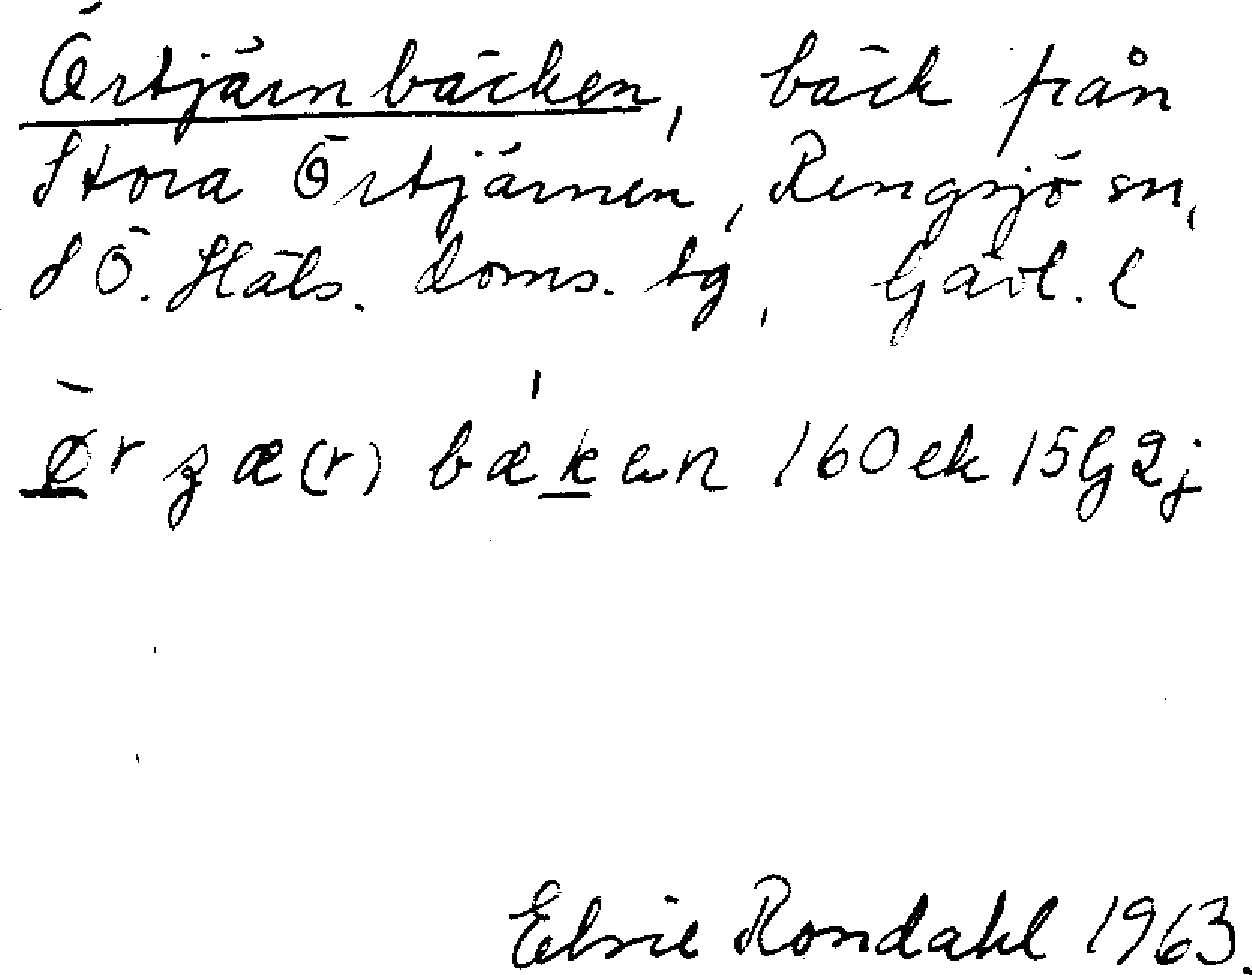 Örtjärnbäcken, bäck från
Stora Örtjärnen, Rengsjö sn,
SÖ. Häls. doms. tg, Gävl. l
ø̀r ʒæ(r) bæ̍ken 160 ek 15G2j
Elsie Rondahl 1963.